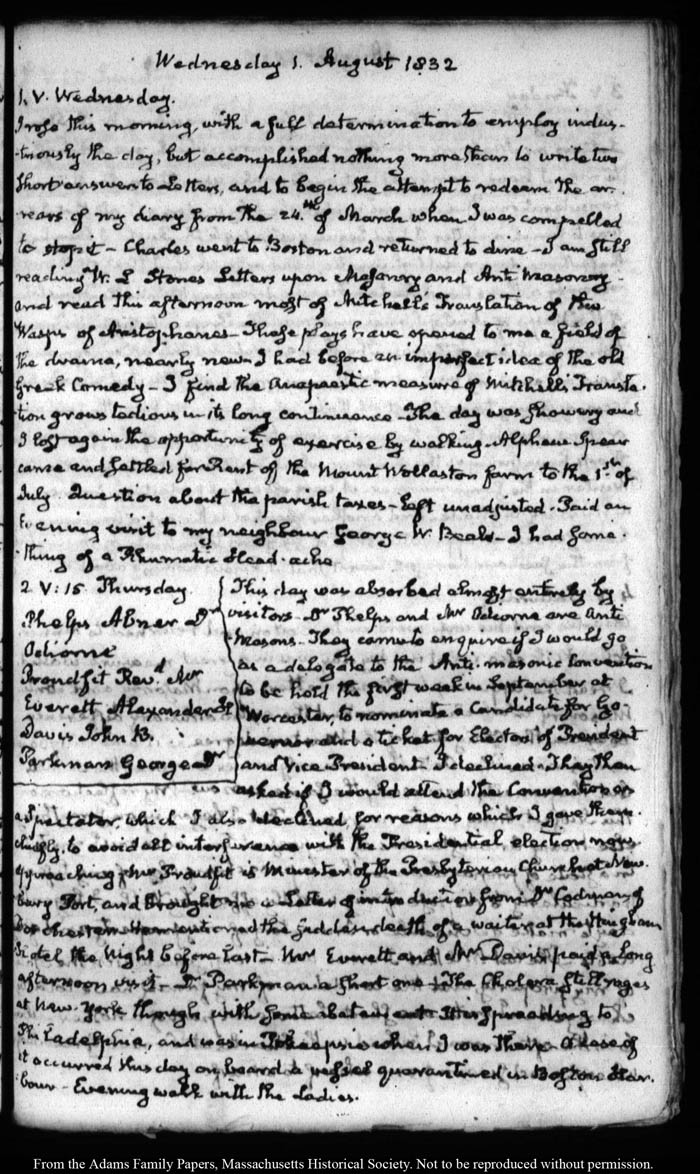 Wednesday 1. August 1832
1. V. Wednesday.
I rose this morning, with a full determination to employ indus-
-triously the day, but accomplished nothing more than to write two
short answers to Letters, and to begin the attempt to redeem the ar-
rears of my diary from the 24th of March when I was compelled
to stop it - Charles went to Boston and returned to dine - I am still
reading W. L Stone's Letters upon Masonry and Anti Masonry -
and read this afternoon most of Mitchell's Translation of the
Wasps of Aristophanes - These plays have opened to me a field of
the drama, nearly new - I had before an imperfect idea of the old
Greek Comedy - I find the Anapaestic measure of Mitchell's Transla-
tion grows tedious in its long continuance - The day was showery and
I lost again the opportunity of exercise by walking - Alpheus Spear
came and settled for Rent of the Mount Wollaston farm to the 1st of
July. Question about the parish taxes - left unadjusted. Paid an
Evening visit to my neighbour George W. Beale - I had some-
thing of a Rhumatic Head-ache
2 V:15 Thursday.
Phelps Abner Dr
Odiorne
Proudfit Revd. Mr
Everett Alexander H
Davis John B.
Parkman George Dr
This day was absorbed almost entirely by
visitors - Dr Phelps and Mr Odiorne are Anti
Masons - They came to enquire if I would go
as a delegate to the Anti-masonic Convention
to be held the first week in September at
Worcester, to nominate a Candidate for Go-
vernor and a ticket for Electors of President
and Vice President - I declined - They then
asked if I would attend the Convention as
a Spectator, which I also declined for reasons which I gave them.
chiefly, to avoid all interference with the Presidential election now
approaching - Mr Proudfit is Minister of the Presbyterian Church at New-
bury Port, and brought me a Letter of introduction from Dr Codman of
Dorchester. He mentioned the sudden death of a waiter at the Hingham
Hotel the Night before last - Mr Everett and Mr Davis paid a long
afternoon visit - Dr Parkman a short one - The Cholera still rages
at New-York though with some abatement - It is spreading to
Philadelphia, and was in when I was there - A case of
it occurred this day on board a vessel quarantined in Boston Har-
bour - Evening walk with the Ladies.
From the Adams Family Papers, Massachusetts Historical Society. Not to be reproduced without permission.